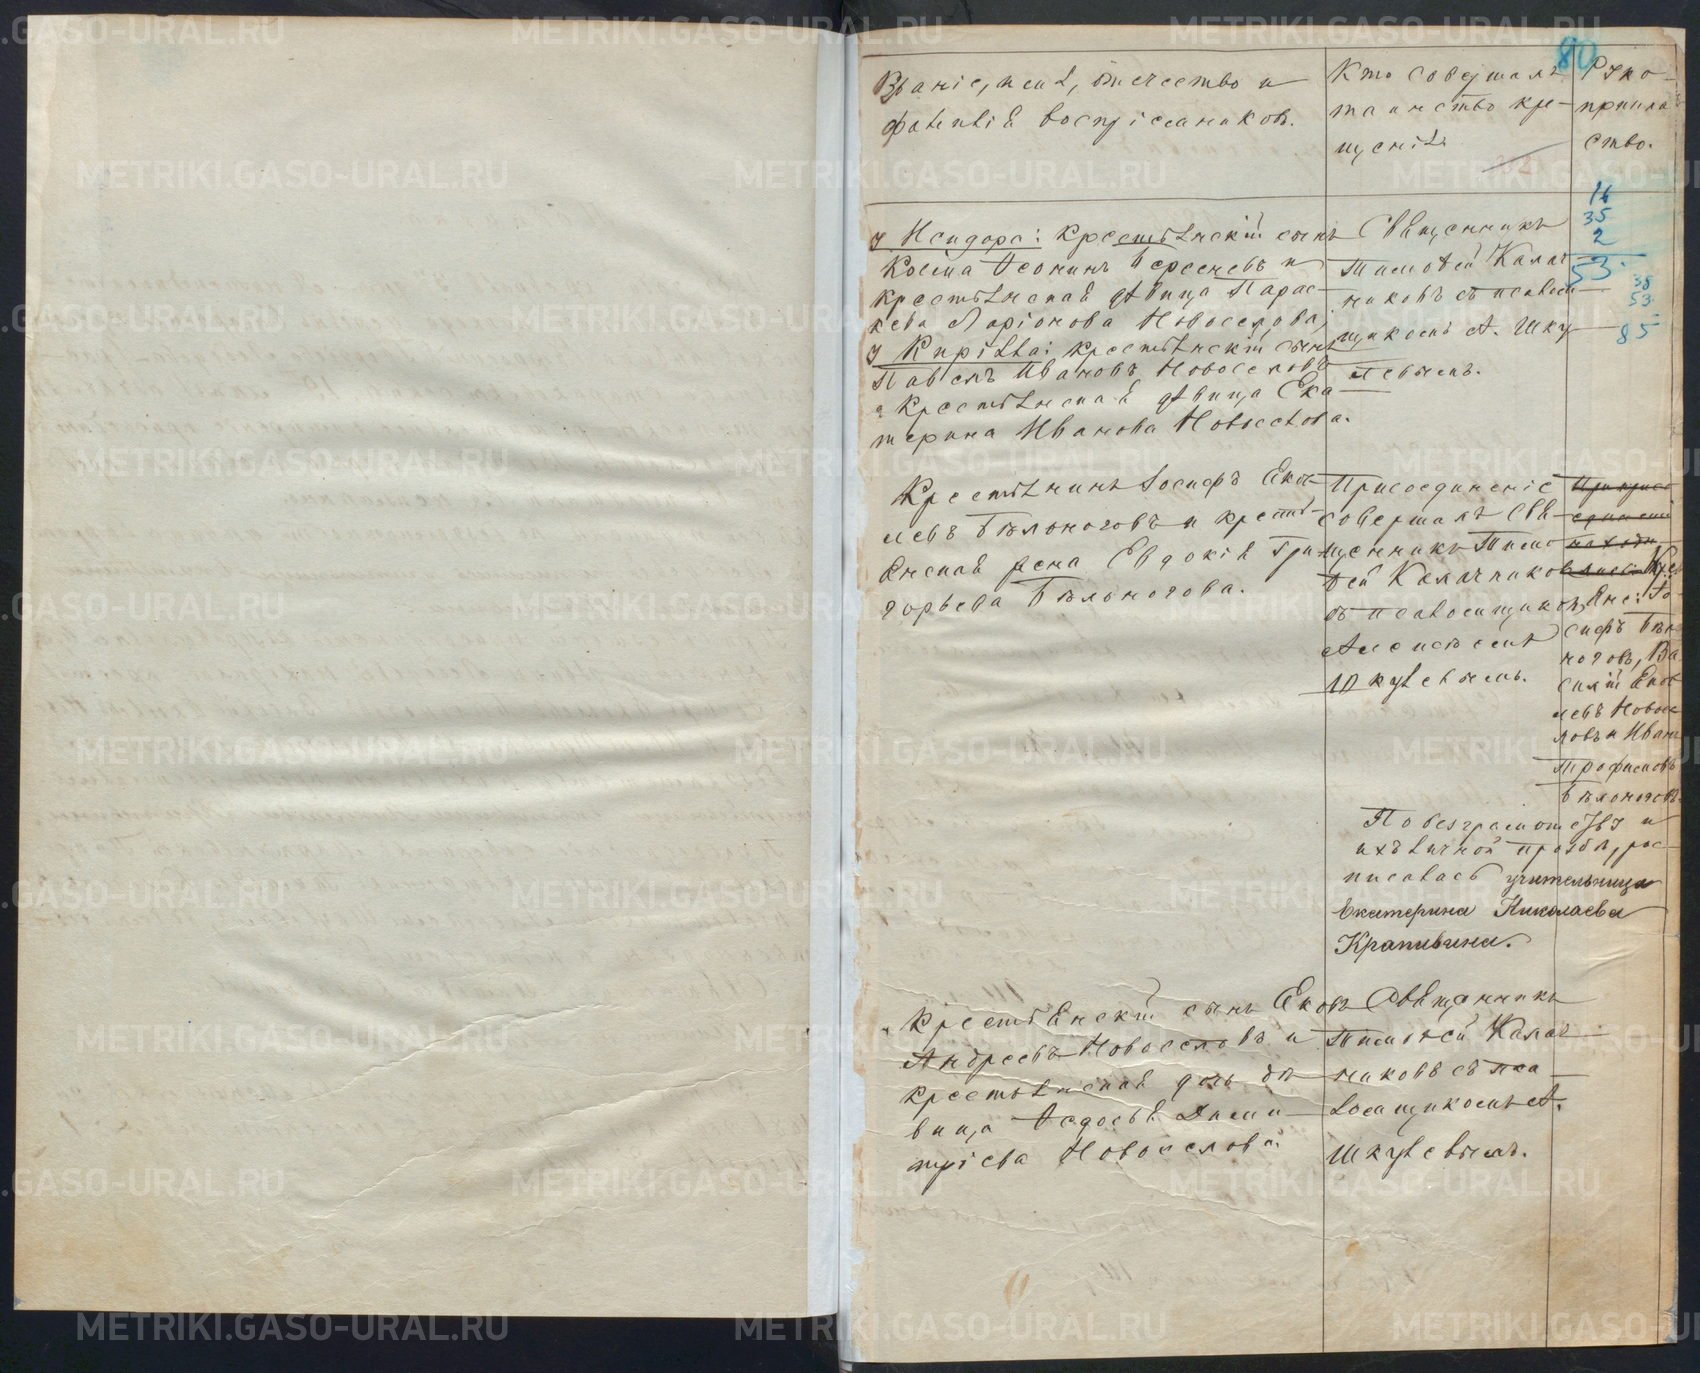 80
Званіе, имя, отечество и
фамилія воспріемниковъ.
Кто совершалъ
таинство кре-
щенія
Руко-
прикла
ство.
16
35
2
53.
35
53
85
У Исидора: крестьянскій сынъ
Косма Ѳеонинъ и
крестьянская дѣвица Парас-
кева Ларіонова Новоселова;
У Кирілла: крестьянскій сынъ
Павелъ Ивановъ Новоселовъ
и крестьянская дѣвица Ека-
терина Иванова Новоселова.
Священникъ
Тимоѳей Калач
никовъ съ псаломъ
щикомъ А. Шку
левымъ.
Крестьянинъ Іосифъ Еков
левъ Бѣлоноговъ и кресть-
янская жена Евдокія Гри
горьева Бѣлоногова.
Присоединеніе
совершалъ Свя-
щенникъ Тимо
ѳей Калачников
съ псаломщиком
Алексѣемъ
Шкулевымъ.
Крес
янe: Іо-
сифъ Бѣл
ноговъ, Ва
силій Еков
левъ Новосе
ловъ и Иванъ
Трофимовъ
Бѣлоноговъ.
По безграмотству и
ихъ личной прозбѣ, рос-
писалась учительница
Екатерина Николаева
Крапивина.
Крестьянскій сынъ Ековъ
Андреевъ Новоселовъ и
крестьянская дочь дѣ
вица Ѳедосья Дими
тріева Новоселова.
Священникъ
Тимоѳей Калач
никовъ съ пса
ломщикомъ А.
Шкулевымъ.
METRIKI.GASO-URAL.RU